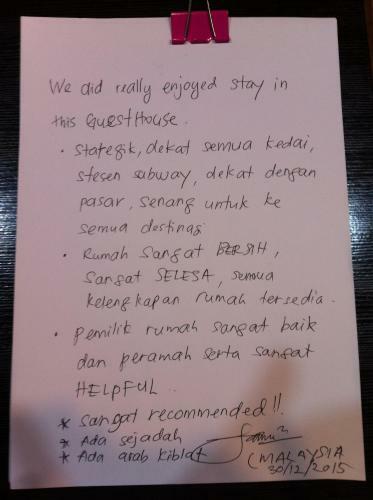 We did really enjoyed stay in
this GuestHouse.
• Stategik, dekat semua kedai,
stesen subway, dekat dengan
pasar, senang untuk ke
semua destinasi
• Rumah sangat BERSIH,
sangat SELESA, semua
kelengkapan rumah tersedia.
• Pemilik rumah sangat baik
dan peramah serta sangat
HELPFUL.
* Sangat recommended!!
* Ada sejadah
* Ada arah kiblat
(MALAYSIA
30/12/2015